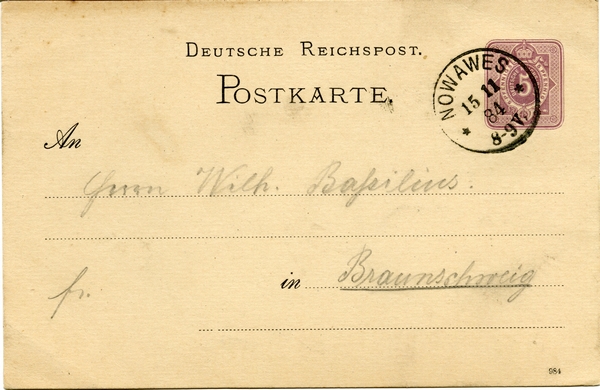 DEUTSCHE REICHSPOST.
POSTKARTE.
NOWAWES
15 11
84
8-9V.
5
An
Herrn Wilh. Baſsilius.
fr.
in Braunschweig
984